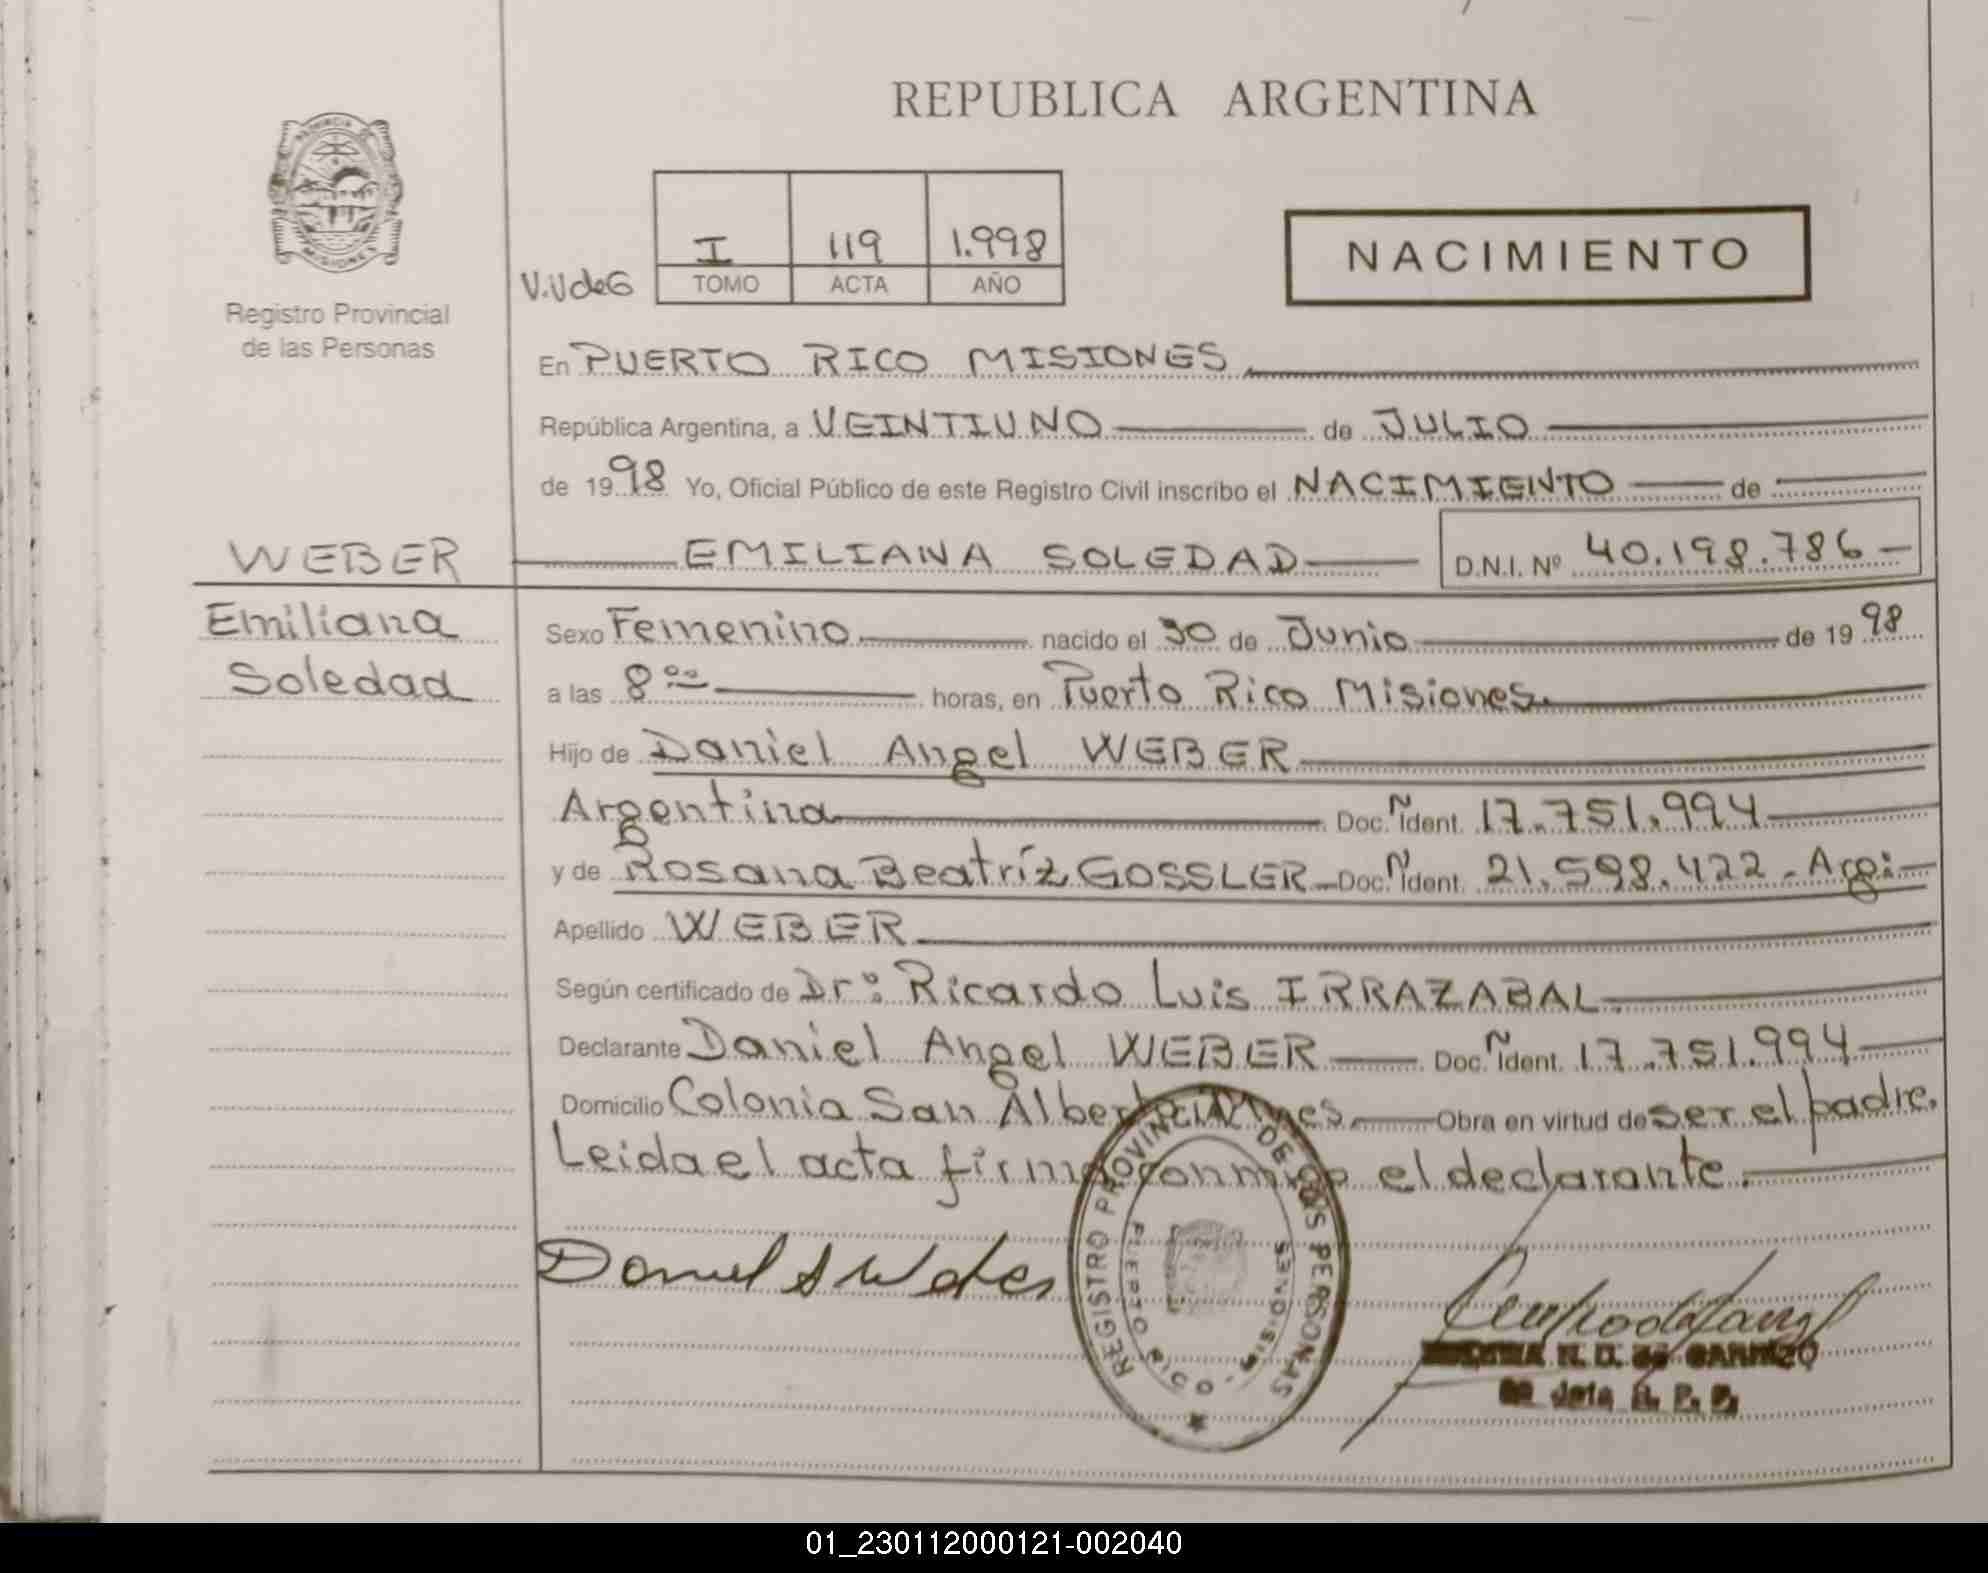 REPUBLICA ARGENTINA
PROVINCIA DE MISIONES
Registro Provincial
de las Personas
I 119 1.998
TOMO ACTA AÑO
V.VdeG
NACIMIENTO
En PUERTO RICO MISIONES
República Argentina, a VEINTIUNO de JULIO
de 1998 Yo, Oficial Público de este Registro Civil inscribo el NACIMIENTO de
WEBER EMILIANA SOLEDAD D.N.I. Nº 40.198.786
Emiliana
Soledad
Sexo Femenino nacido el 30 de Junio de 1998
a las 8 oo horas, en Puerto Rico Misiones.
Hijo de Daniel Angel WEBER
Argentina Doc. Ñ Ident. 17.751.994
y de Rosana Beatríz GOSSLER Doc. Ñ Ident. 21.598.422. Arg:
Apellido WEBER
Según certificado de Drº: Ricardo Luis IRRAZABAL.
Declarante Daniel Angel WEBER Doc. Ñ Ident. 17.751.994
Domicilio Colonia San Alberto Mnes. Obra en virtud de ser el padre.
Leida el acta firma conmigo el declarante.
Daniel A Weber
REGISTRO PROVINCIAL DE LAS PERSONAS
PUERTO RICO - MISIONES
N. D. de GARRIZO
Jefe R. P. P.
01_230112000121-002040